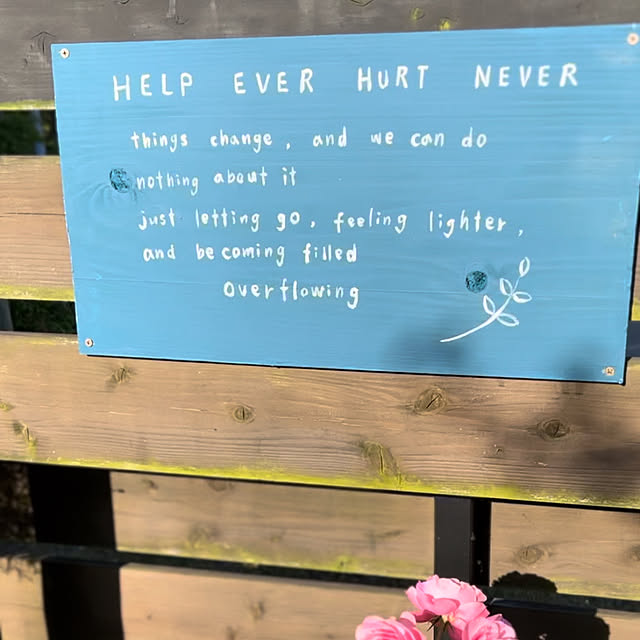 HELP EVER HURT NEVER
things change, and we can do
nothing about it
just letting go, feeling lighter,
and becoming filled
overflowing